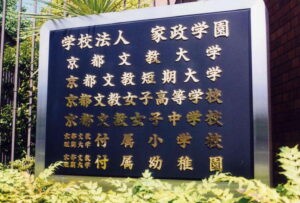 学校法人 家政学園
京都文教大学
京都文教短期大学
京都文教女子高等学校
京都文教女子中学校
京都文教短期大学付属小学校
京都文教短期大学付属幼稚園